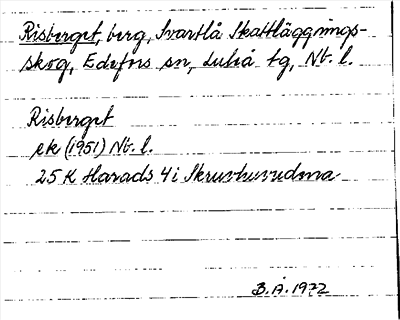 Risberget, berg, Svartlå Skattläggnings-
skog, Edefors sn, Luleå tg, Nb. l.
Risberget
ek (1951) Nb. l.
25 K Harads 4 i
B. Å. 1972